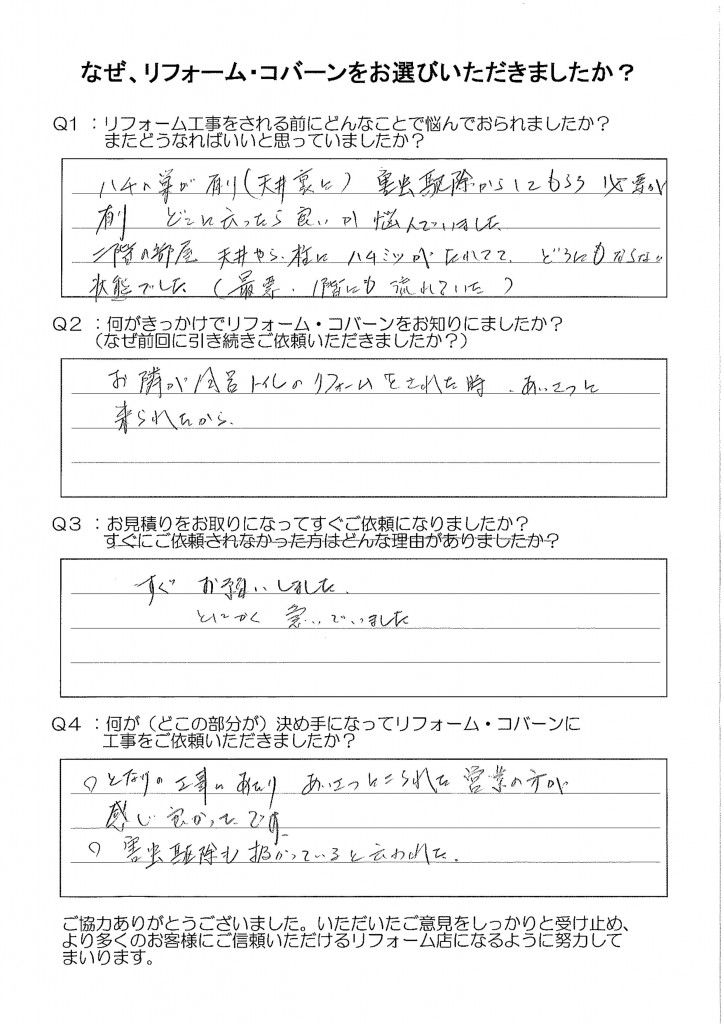 なぜ、リフォーム・コバーンをお選びいただきましたか？
Q1：リフォーム工事をされる前にどんなことで悩んでおられましたか？
またどうなればいいと思っていましたか？
ハチの巣が有り（天井裏に） 害虫駆除からしてもらう 必要が
有り どこに云ったら良いか 悩んでいました
二階の部屋 天井やら、柱に ハチミツが たれてて どうにもならない
状態でした（最悪、1階にも 流れていた）
Q2：何がきっかけでリフォーム・コバーンをお知りにましたか？
（なぜ前回に引き続きご依頼いただきましたか？）
お隣が 風呂 トイレの リフォームをされた時、あいさつに
来られたから.
Q3：お見積りをお取りになってすぐご依頼になりましたか？
すぐにご依頼されなかった方はどんな理由がありましたか？
すぐ お願いしました.
とにかく 急いでいました
Q4：何が（どこの部分が）決め手になってリフォーム・コバーンに
工事をご依頼いただきましたか？
○ となりの 工事に あたり あいさつに こられた 営業の方が
感じ 良かったです.
○ 害虫駆除も 扱かっていると云われた.
ご協力ありがとうございました。いただいたご意見をしっかりと受け止め、
より多くのお客様にご信頼いただけるリフォーム店になるように努力して
まいります。